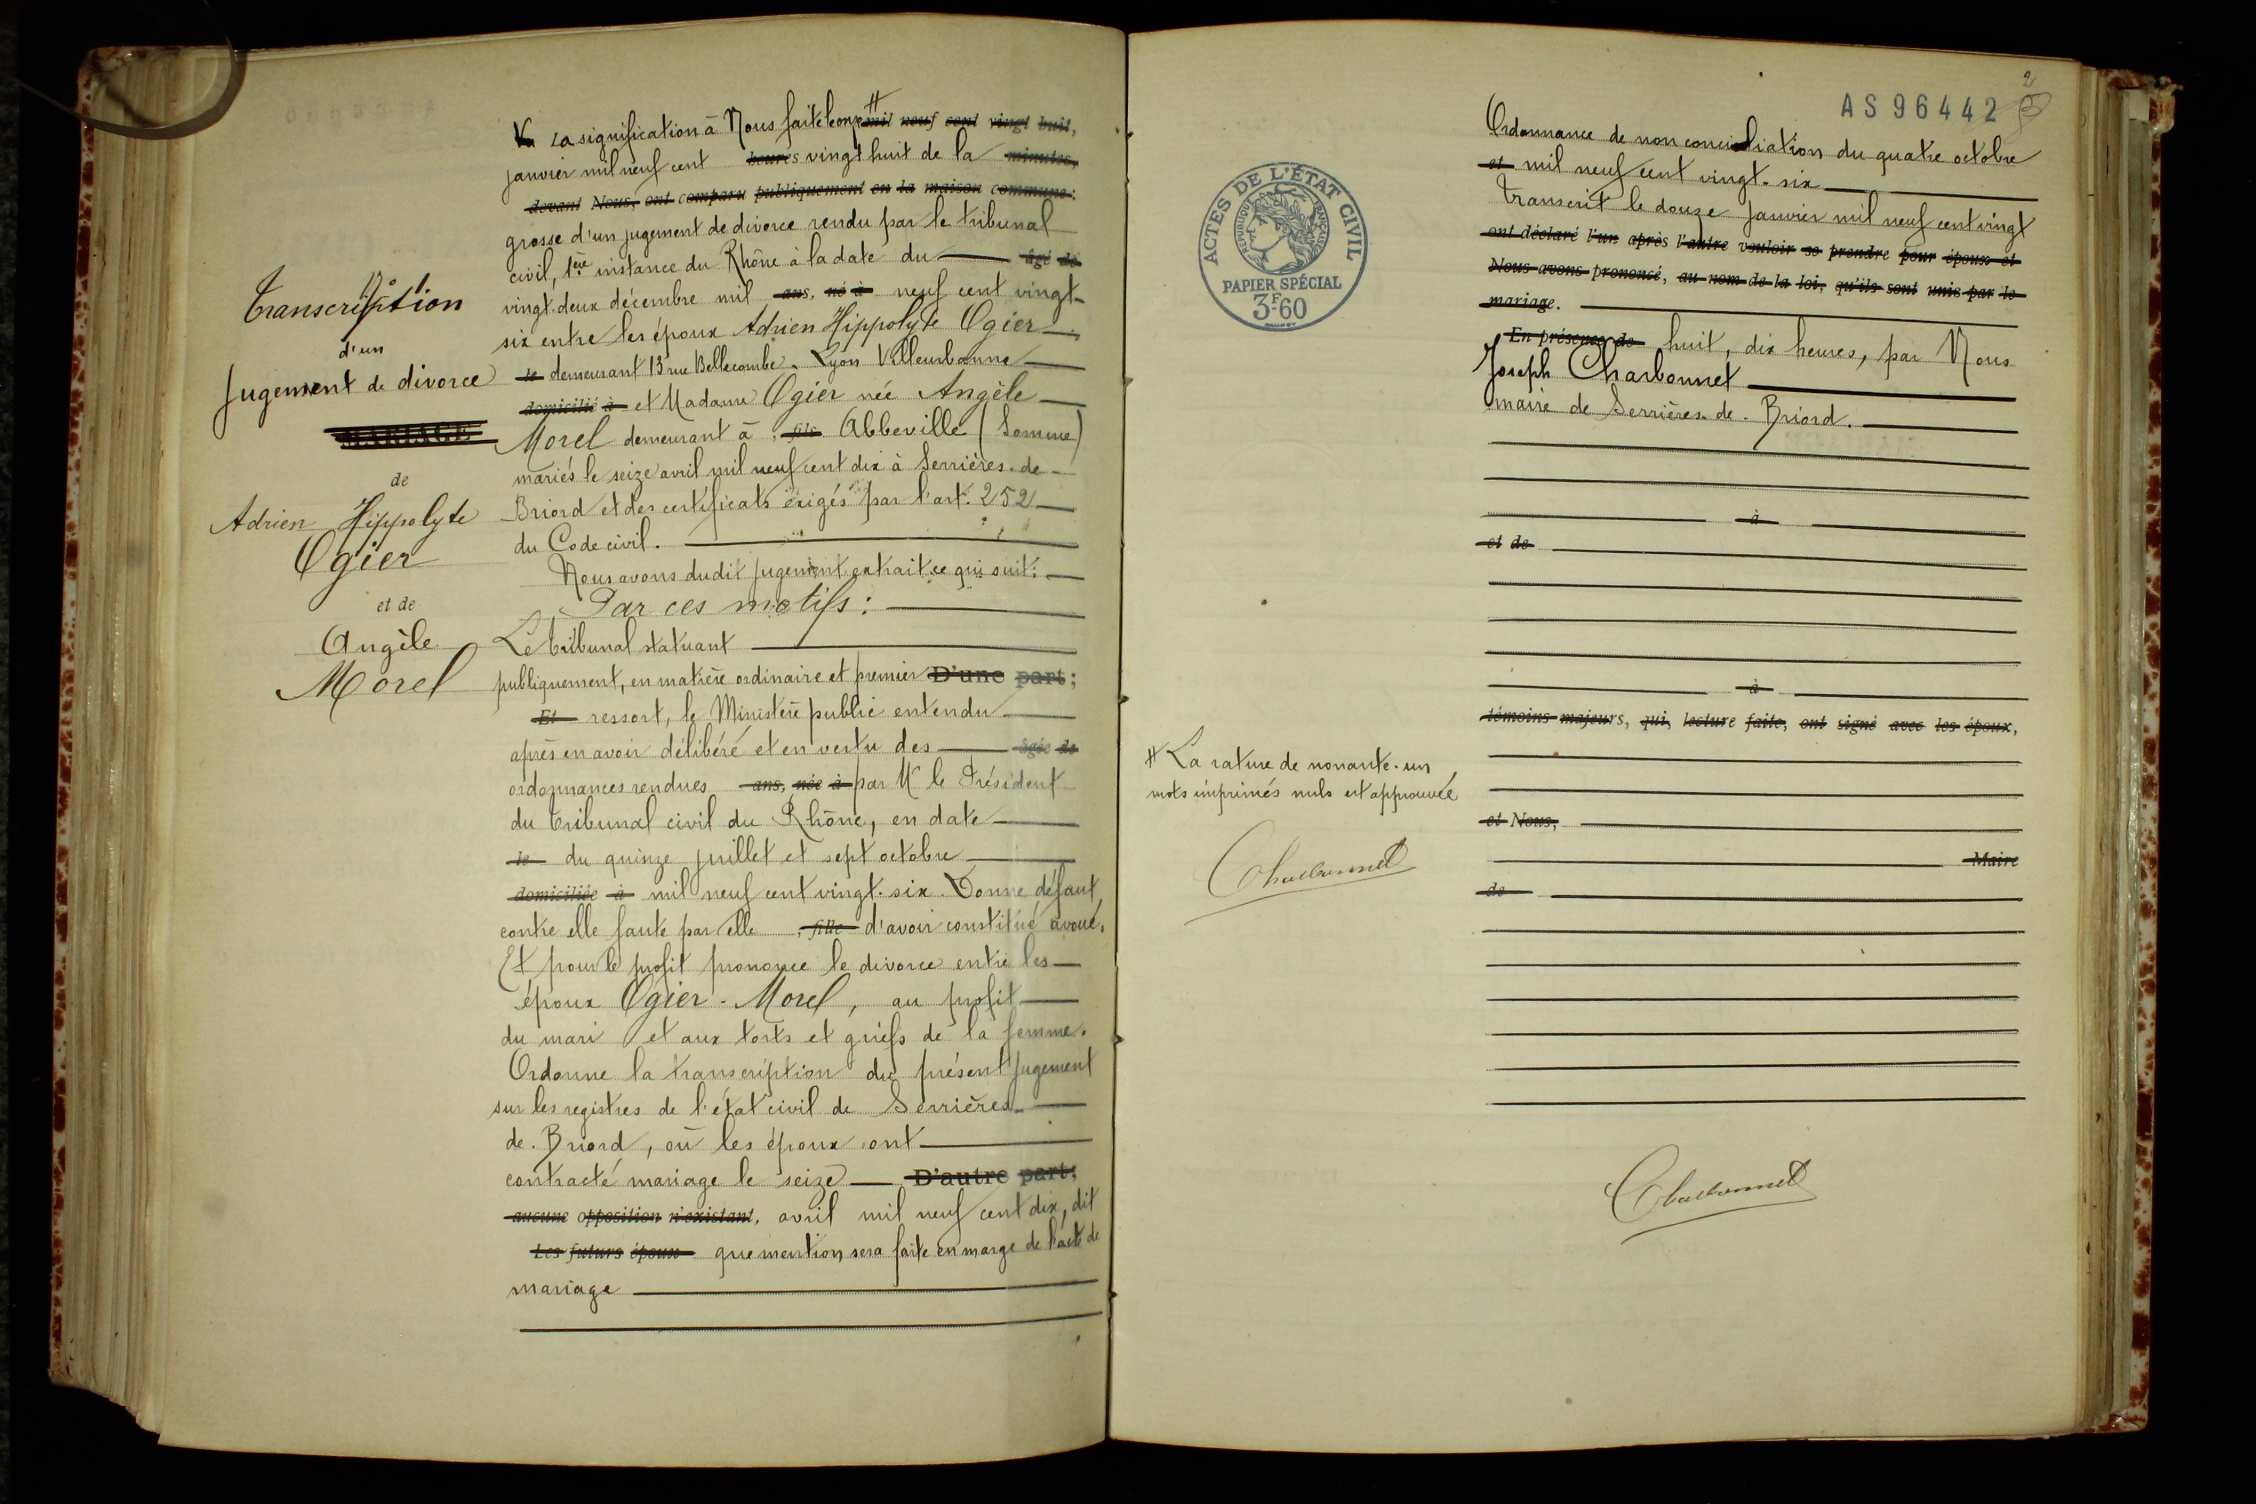 Transcription
d'un
Jugement de divorce
MARIAGE
de
Adrien Hippolyte
Ogier
et de
Angèle
Morel
Vu la signification à Nous faite le onze # mil neuf cent vingt huit,
janvier mil neuf cent heures vingt huit de la minutes,
devant Nous, ont comparu publiquement en la maison commune:
grosse d'un jugement de divorce rendu par le tribunal
civil, 1ère instance du Rhône à la date du âgé de
vingt-deux décembre mil ans, né à neuf cent vingt-
six entre les époux Adrien Hippolyte Ogier
le demeurant 13 rue Bellecombe. Lyon Villeurbanne
domicilié à et Madame Ogier née Angèle
Morel demeurant à , fils Abbeville (Somme)
mariés le seize avril mil neuf cent dix à Serrières-de-
Briord et des certificats éxigés par l'art. 252
du Code civil.
Nous avons dudit jugement extrait ce qui suit:
Par ces motifs:
Le tribunal statuant
publiquement, en matière ordinaire et premier D'une part;
Et ressort, le Ministère public entendu
après en avoir délibéré et en vertu des âgée de
ordonnances rendues ans, née à par Mr le Président
du tribunal civil du Rhône, en date
le du quinze juillet et sept octobre
domiciliée à mil neuf cent vingt-six. Donne défaut
contre elle faute par elle , fille d'avoir constitué avoué.
Et pour le profit prononce le divorce entre les
époux Ogier-Morel, au profit
du mari et aux torts et griefs de la femme.
Ordonne la transcription du présent jugement
sur les registres de l'état civil de Serrières-
de-Briord, où les époux ont
contracté mariage le seize D'autre part;
aucune opposition n'existant. avril mil neuf cent dix, dit
Les futurs époux que mention sera faite en marge de l'acte de
mariage
ACTES DE L'ÉTAT CIVIL
RÉPUBLIQUE FRANÇAISE
PAPIER SPÉCIAL
3F60
# La rature de nonante-un
mots imprimés nuls est approuvée
Charbonnet
2
AS96442
Ordonnance de non conciliation du quatre octobre
et mil neuf cent vingt-six
Transcrit le douze janvier mil neuf cent vingt
ont déclaré l'un après l'autre vouloir se prendre pour époux et
Nous avons prononcé, au nom de la loi, qu'ils sont unis par le
mariage.
En présence de huit, dix heures, par Nous
Joseph Charbonnet
maire de Serrières-de-Briord.
à
et de
à
témoins majeurs, qui, lecture faite, ont signé avec les époux,
et Nous,
Maire
de
Charbonnet